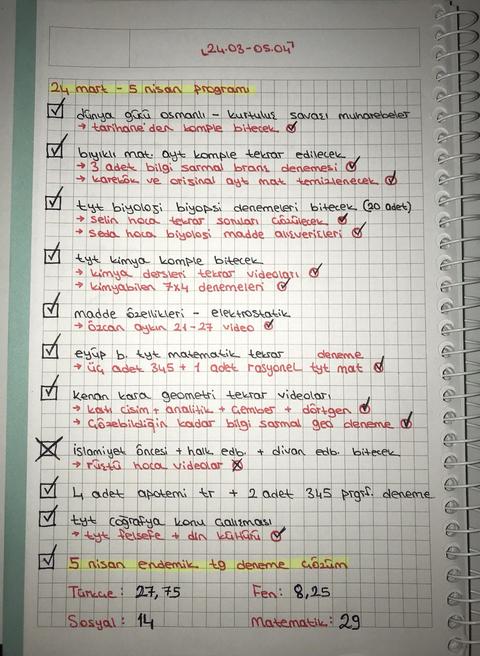 24.03-05.04
24 mart - 5 nisan programı
dünya gücü osmanlı - kurtuluş savaşı muharebeler
→ tarihane'den komple bitecek
bıyıklı mat. ayt komple tekrar edilecek
→ 3 adet bilgi sarmal branş denemesi
→ karekök ve orijinal ayt mat temizlenecek
tyt biyoloji biyopsi denemeleri bitecek (20 adet)
→ selin hoca tekrar soruları çözülecek
→ seda hoca biyoloji madde alışverişleri
tyt kimya komple bitecek
→ kimya dersleri tekrar videoları
→ kimyabilen 7x4 denemeleri
madde özellikleri - elektrostatik
→ özcan aykın 21-27 video
eyüp b. tyt matematik tekrar deneme
→ üç adet 345 + 1 adet rasyonel tyt mat
kenan kara geometri tekrar videoları
→ katı cisim + analitik + çember + dörtgen
→ çözebildiğin kadar bilgi sarmal geo deneme
islamiyet öncesi + halk edb. + divan edb. bitecek
→ rüştü hoca videolar
4 adet apotemi tr + 2 adet 345 prgrf. deneme
tyt coğrafya konu çalışması
→ tyt felsefe + din kültürü
5 nisan endemik tg deneme çözüm
Türkçe: 27,75 Fen: 8,25
Sosyal: 14 Matematik: 29